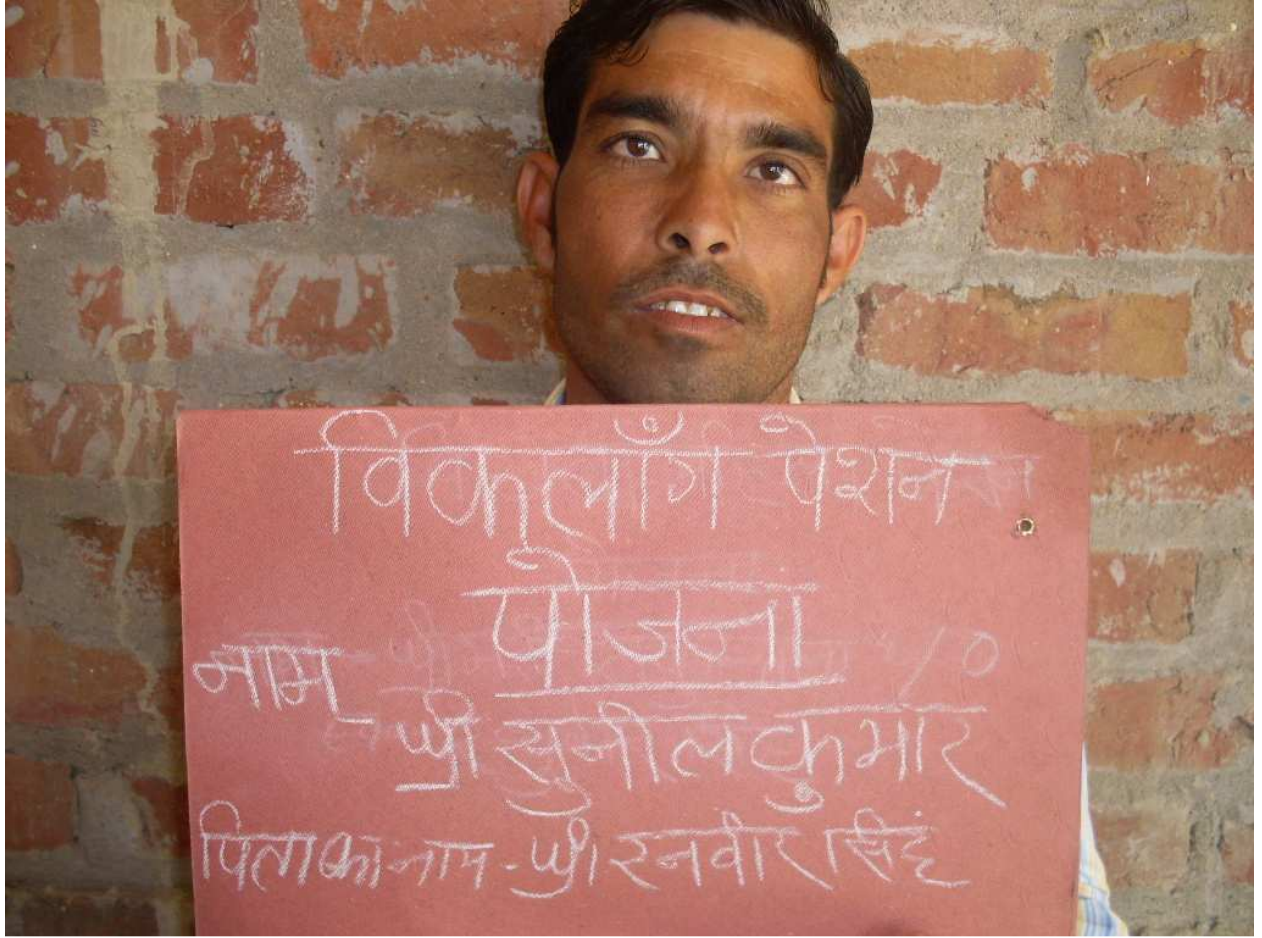 विकलाँग पेशन
योजना
नाम - श्री सुनील कुमार
पिता का नाम - श्री रनवीर सिंह